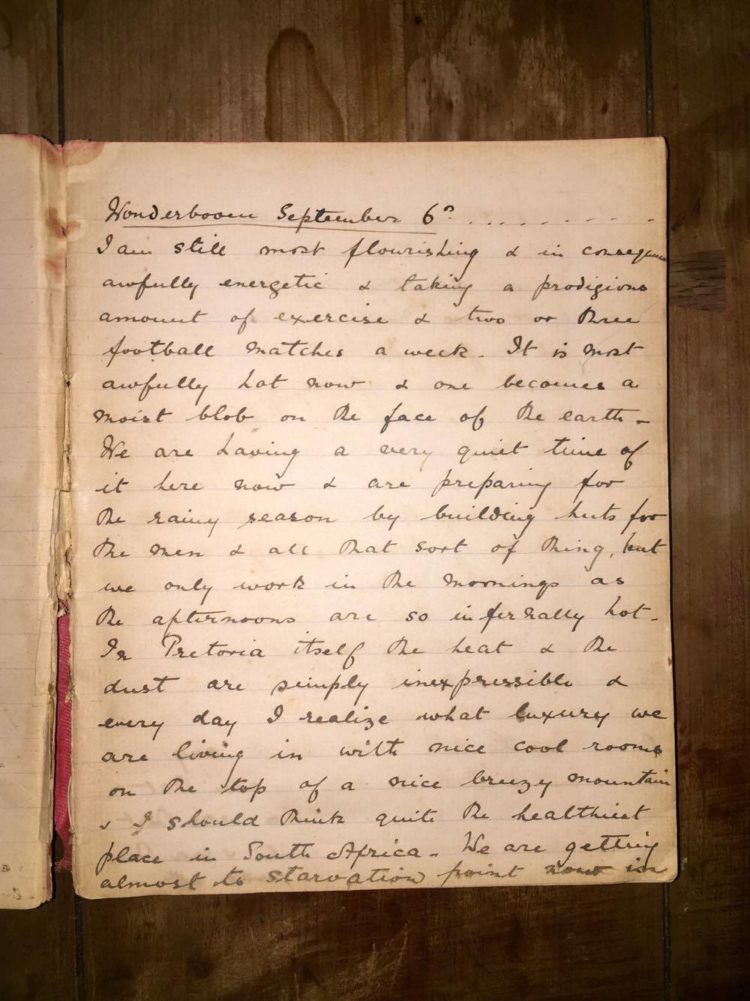 Wonderboom September 6th. . . . . . . . . .
I am still most flourishing & in consequence
awfully energetic & taking a prodigious
amount of exercise & two or three
football matches a week. It is most
awfully hot now & one becomes a
moist blob on the face of the earth -
We are having a very quiet time of
it here now & are preparing for
the rainy season by building huts for
the men & all that sort of thing, but
we only work in the mornings as
the afternoons are so infernally hot -
In Pretoria itself the heat & the
dust are simply inexpressible &
every day I realize what luxury we
are living in with nice cool rooms
on the top of a nice breezy mountain
& I should think quite the healthiest
place in South Africa - We are getting
almost to starvation point now in